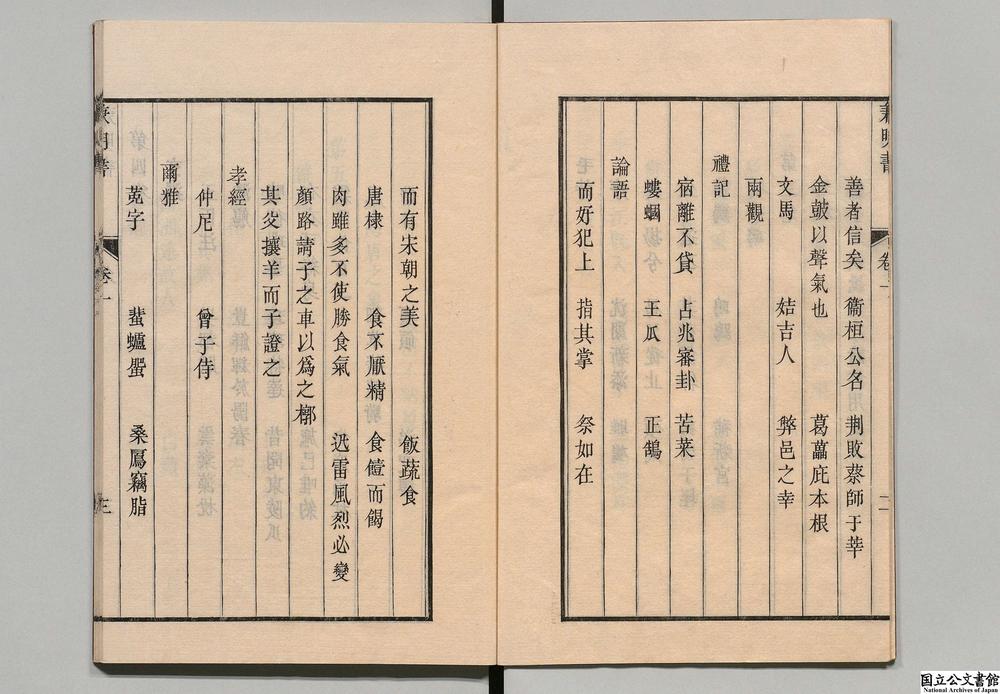 兼明書 卷一 二
善者信矣 衞桓公名 荆敗蔡師于莘
金皷以聲氣也 葛藟庇本根
文馬 姞吉人 弊邑之幸
兩觀
禮記
宿離不貸 占兆審卦 苦菜
螻蟈 王瓜 正鵠
論語
而好犯上 指其掌 祭如在
而有宋朝之美 飯蔬食
唐棣 食不厭精 食饐而餲
肉雖多不使勝食氣 迅雷風烈必變
顏路請子之車以爲之槨
其父攘羊而子證之
孝經
仲尼 曾子侍
爾雅
蒐字 蜚蠦蜰 桑鳸竊脂
兼明書 卷一 三
国立公文書館
National Archives of Japan